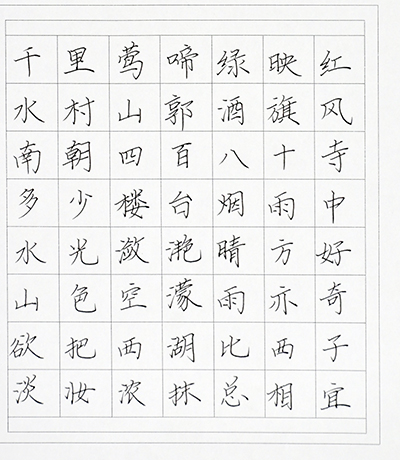 千里莺啼绿映红
水村山郭酒旗风
南朝四百八十寺
多少楼台烟雨中
水光潋滟晴方好
山色空濛雨亦奇
欲把西湖比西子
淡妆浓抹总相宜